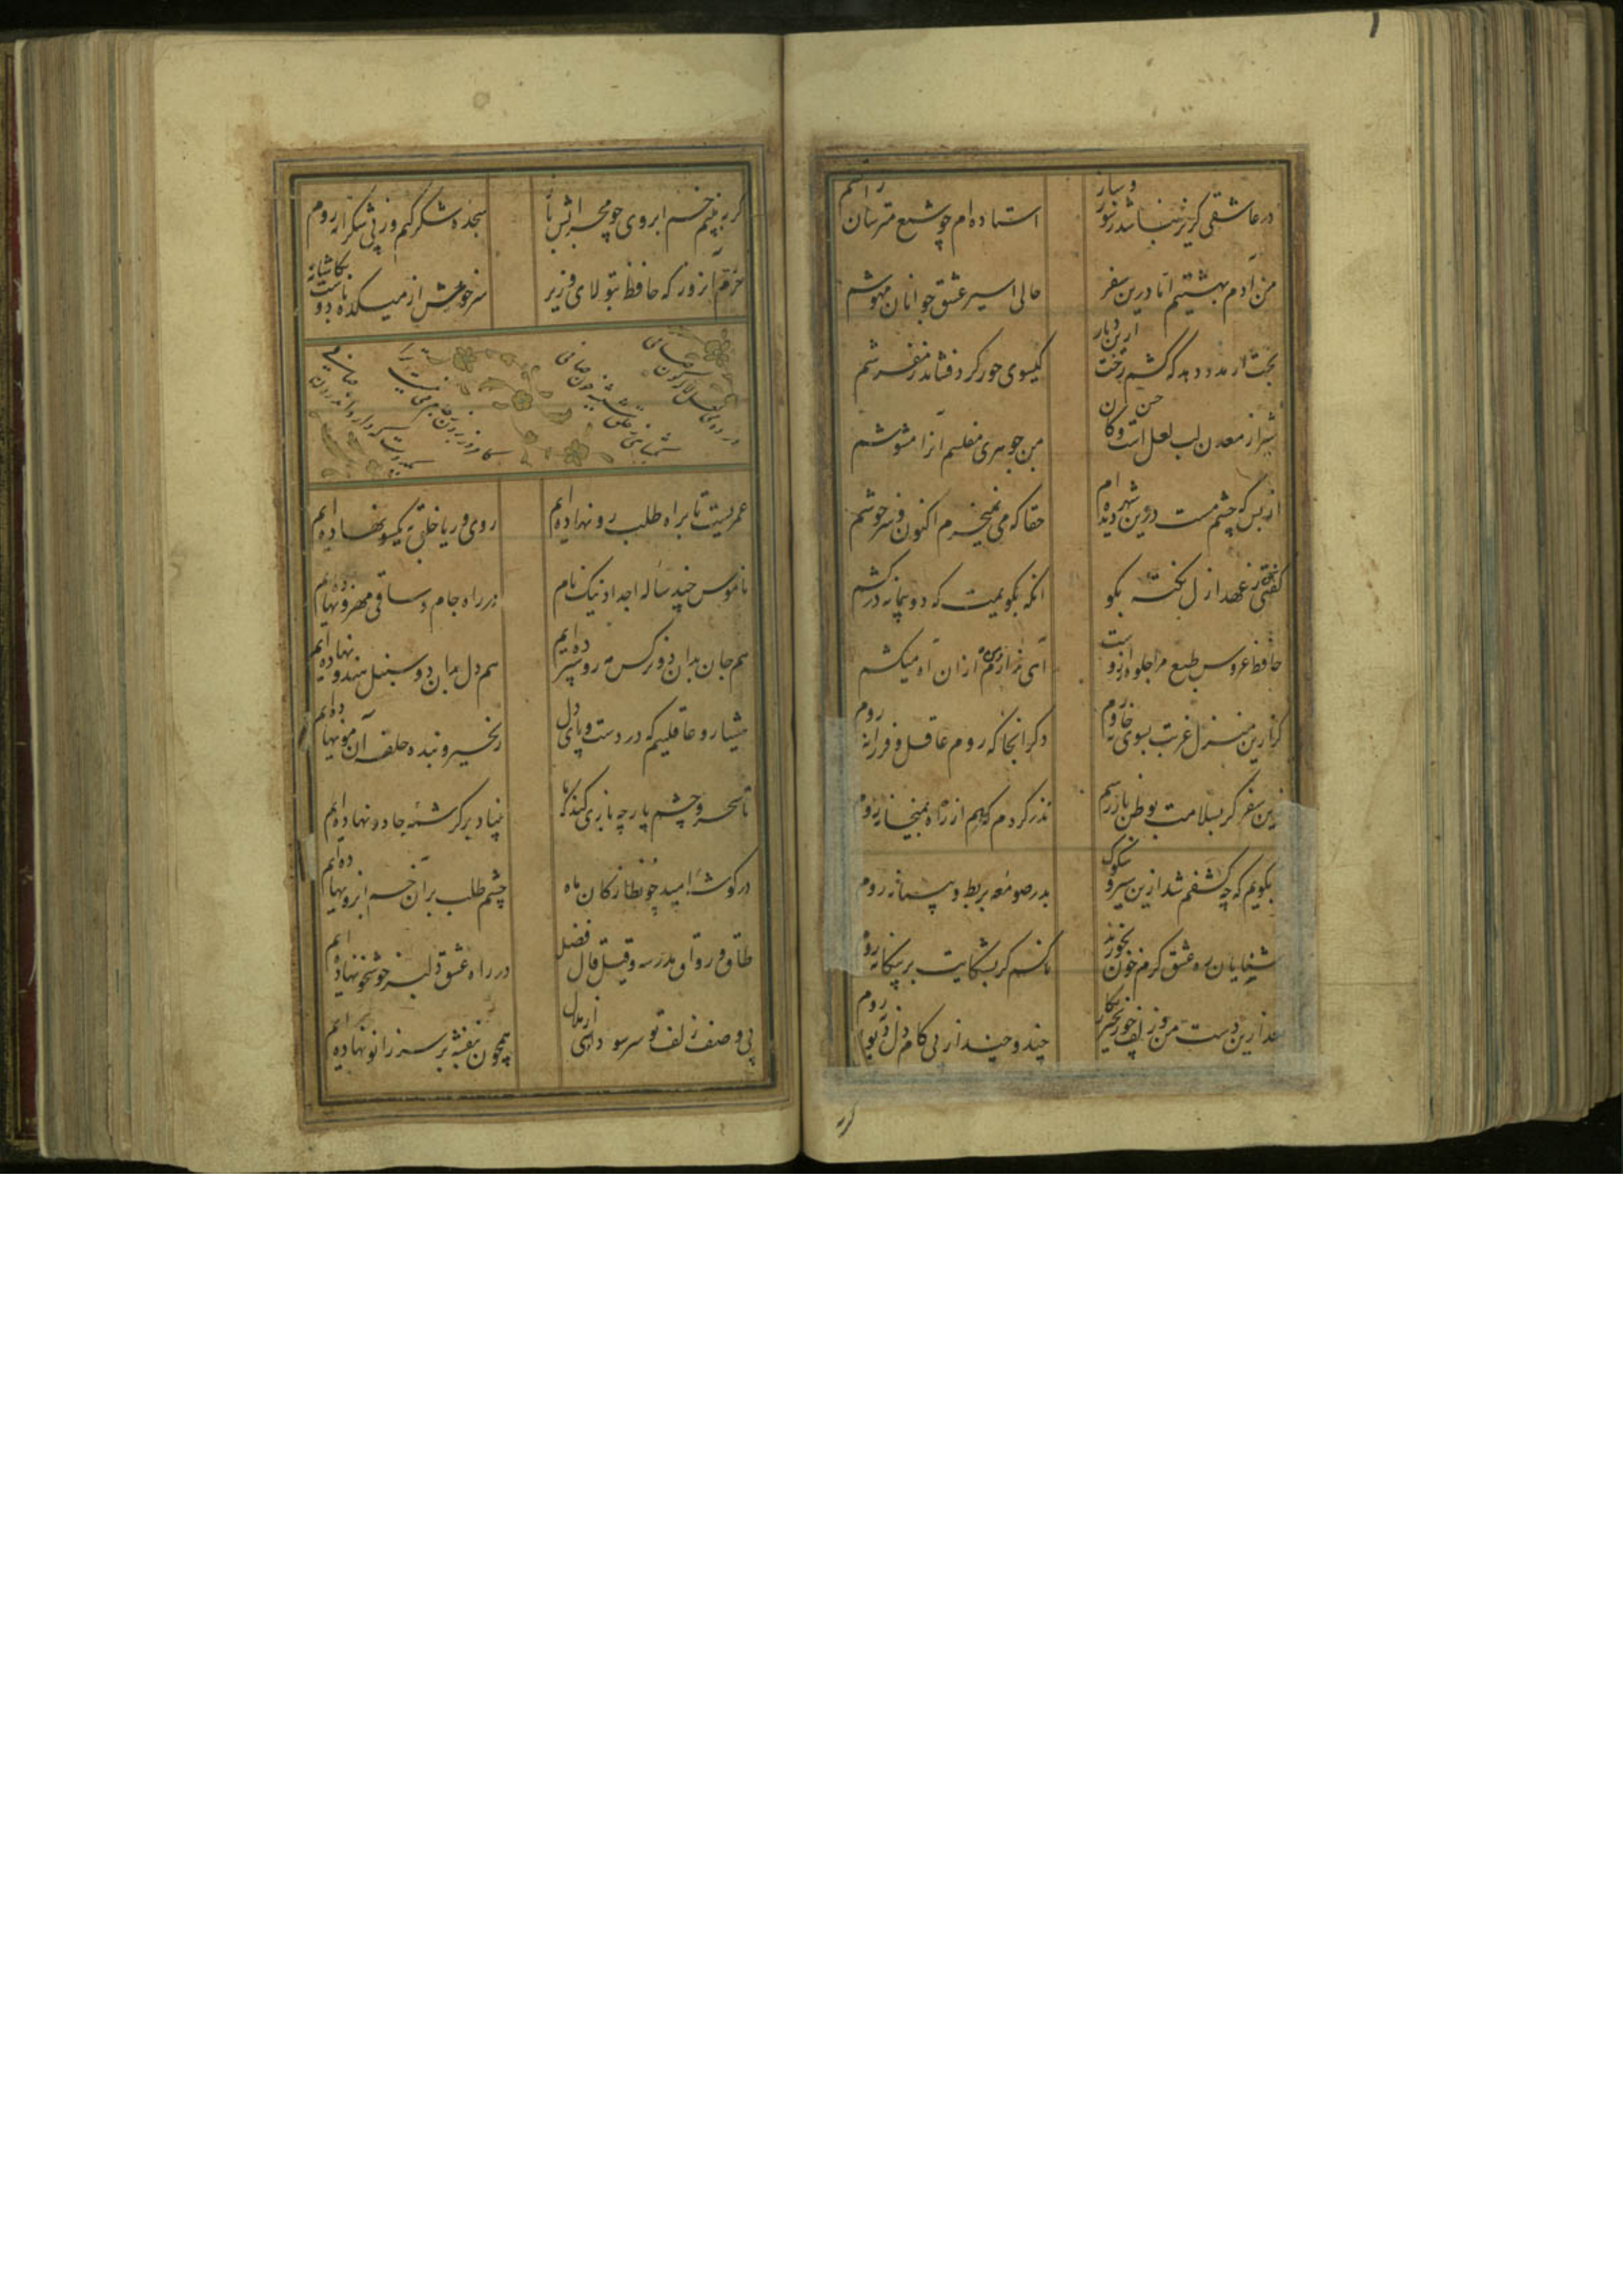 در عاشقی گریز نباشد ز سوز و ساز
استاده ام چو شمع مترسان ز آتشم
من آدم بهشتیم اما درین سفر
حالی اسیر عشق جوانان مهوشم
بخت ار مدد دهد که کشم رخت ازین دیار
گیسوی حور گرد فشاند ز مفرشم
شیراز معدن لب لعل است و کان حسن
من جوهری مفلسم آنرا مشوشم
از بس که چشم مست درین شهر دیده ام
حقا که می نمیخرم اکنون و سرخوشم
گفتی ز عهد ازل نکته بگو
آنگه بگویمت که دو پیمانه درکشم
حافظ عروس طبع مرا جلوه آرزوست
آیینه ندارم ازان آه میکشم
گر ازین منزل غربت بسوی خانه روم
دگر آنجا که روم عاقل و فرزانه روم
زین سفر گر بسلامت بوطن باز رسم
نذر کردم که هم از راه بمیخانه روم
بگویم که چه کشفم شد ازین سیر و سلوک
بدر صومعه بربط و پیمانه روم
آشنایان ره عشق گرم خون بخورند
ناکسم گر بشکایت بر بیگانه روم
بعد ازین دست من و زلف چو زنجیر نگار
چند و چند از پی کام دل دیوانه روم
گر
گر ببینم خم ابروی چو محرابش باز
سجده شکر کنم وز پی شکرانه روم
خرم آن روز که حافظ بتولای وزیر
سرخوش از میکده با دوست بکاشانه روم
عمریست تا براه طلب رو نهاده ایم
روی و ریا خلق بیکسو نهاده ایم
ناموس چند ساله اجداد نیک نام
در راه جام و ساقی مهرو نهاده ایم
هم جان بدان دو نرگس سپرده ایم
هم دل بدان دو سنبل هندو نهاده ایم
هشیار و عاقلیم که در دست و پای دل
زنجیر و بند حلقه آن مو نهاده ایم
تا سحر و چشم یار چه بازی کند که ما
بنیاد بر کرشمه جادو نهاده ایم
در گوشه امید چو نظارگان ماه
چشم طلب بر آن خم ابرو نهاده ایم
طاق و رواق مدرسه و قیل و قال فضل
در راه عشق دلبر خوشخو نهاده ایم
بی وصف زلف تو سر سودایی از ملال
همچون بنفشه بر سر زانو نهاده ایم